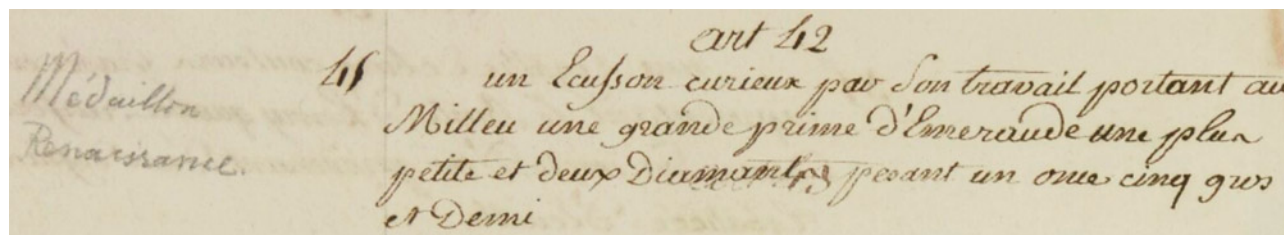 art 42
Médaillon
Renaissance.
45 un Ecusson curieux par son travail portant au
Milleu une grande prime d'Emeraude une plus
petite et deux Diamants pesant un once cinq gros
et Demi